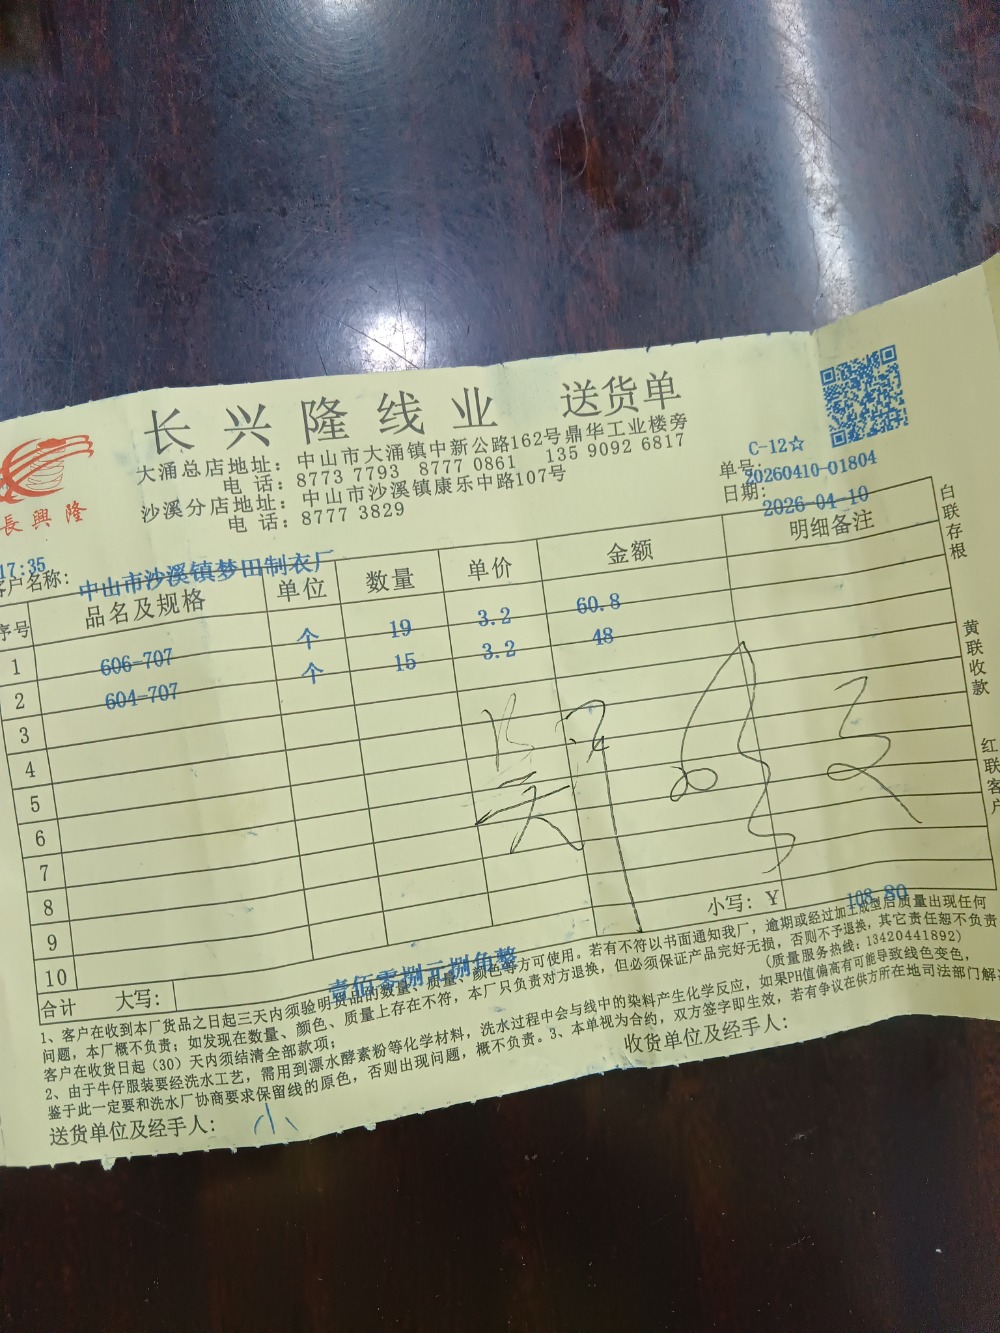 长兴隆线业 送货单
長興隆
大涌总店地址：中山市大涌镇中新公路162号鼎华工业楼旁
电 话：8773 7793 8777 0861 135 9092 6817
沙溪分店地址：中山市沙溪镇康乐中路107号
电 话：8777 3829
C-12☆
单号：20260410-01804
日期：2026-04-10
17:35
客户名称：中山市沙溪镇梦田制衣厂
序号 品名及规格 单位 数量 单价 金额 明细备注
1 606-707 个 19 3.2 60.8
2 604-707 个 15 3.2 48
3
4
5
6
7
8
9
10
合计 大写：壹佰零捌元捌角整 小写：￥108.80
白联存根
黄联收款
红联客户
1、客户在收到本厂货品之日起三天内须验明货品的数量、质量、颜色等方可使用。若有不符以书面通知我厂，逾期或经过加工成型后质量出现任何
问题，本厂概不负责；如发现在数量、颜色、质量上存在不符，本厂只负责对方退换，但必须保证产品完好无损，否则不予退换，其它责任恕不负责
客户在收货日起（30）天内须结清全部款项； (质量服务热线：13420441892)
2、由于牛仔服装要经洗水工艺，需用到漂水酵素粉等化学材料，洗水过程中会与线中的染料产生化学反应，如果PH值偏高有可能导致线色变色，
鉴于此一定要和洗水厂协商要求保留线的原色，否则出现问题，概不负责。3、本单视为合约，双方签字即生效，若有争议在供方所在地司法部门解决
送货单位及经手人： 收货单位及经手人：